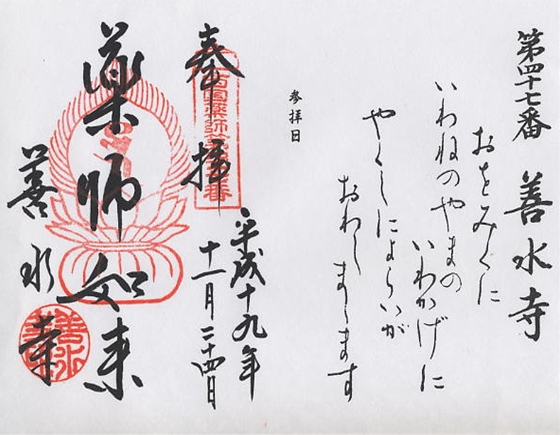 第四十七番 善水寺
おとにきく
いわねのやまの
いわかげに
やくしによらいが
おわしまします
参拝日
奉拝
平成十九年
十一月二十四日
薬師如来
善水寺